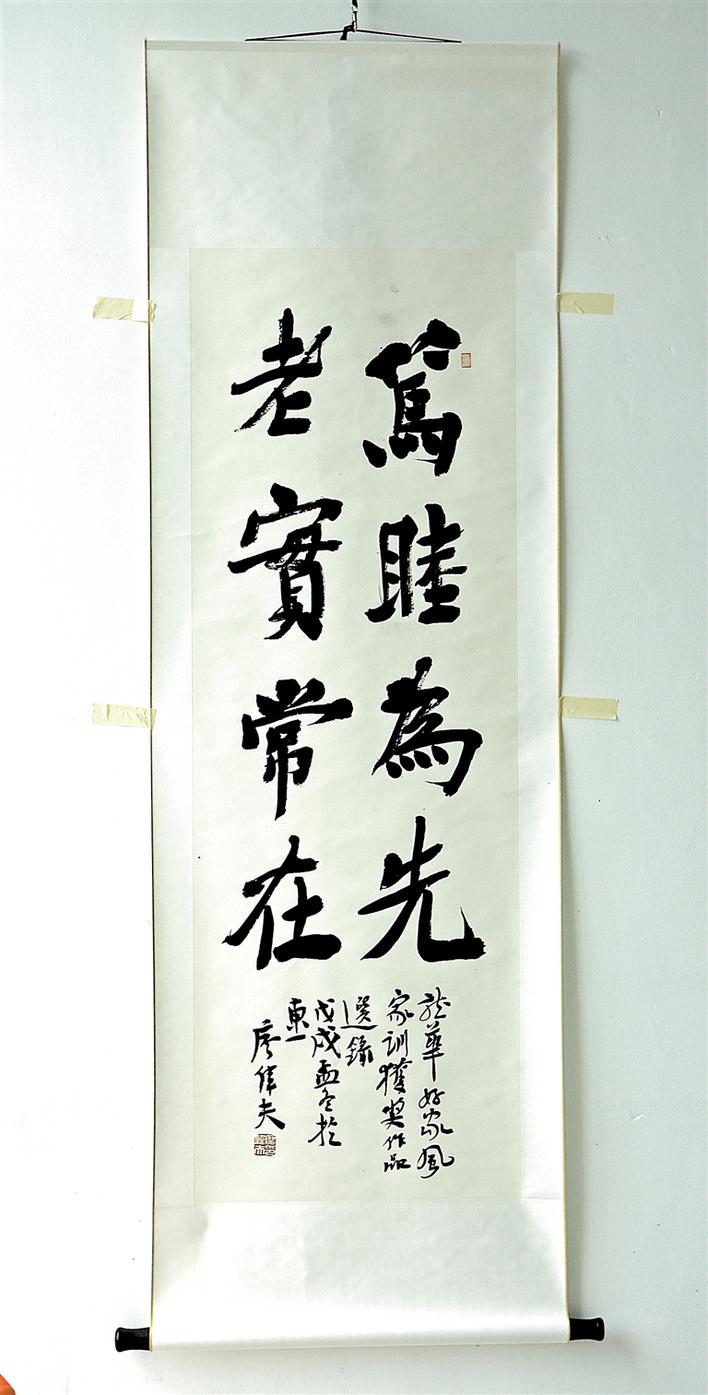 篤睦為先
老實常在
龍華好家風
家訓獲奬作品
選錄
戊戌孟冬於
東一
廖偉夫